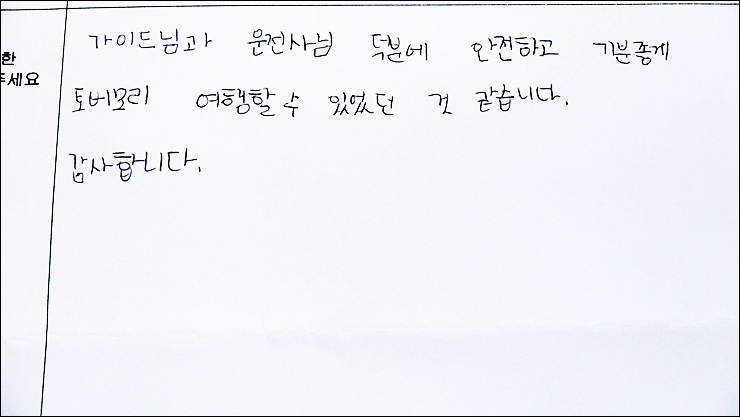 가이드님과 운전사님 덕분에 안전하고 기분좋게
한
주세요
토버모리 여행할 수 있었던 것 같습니다.
감사합니다.